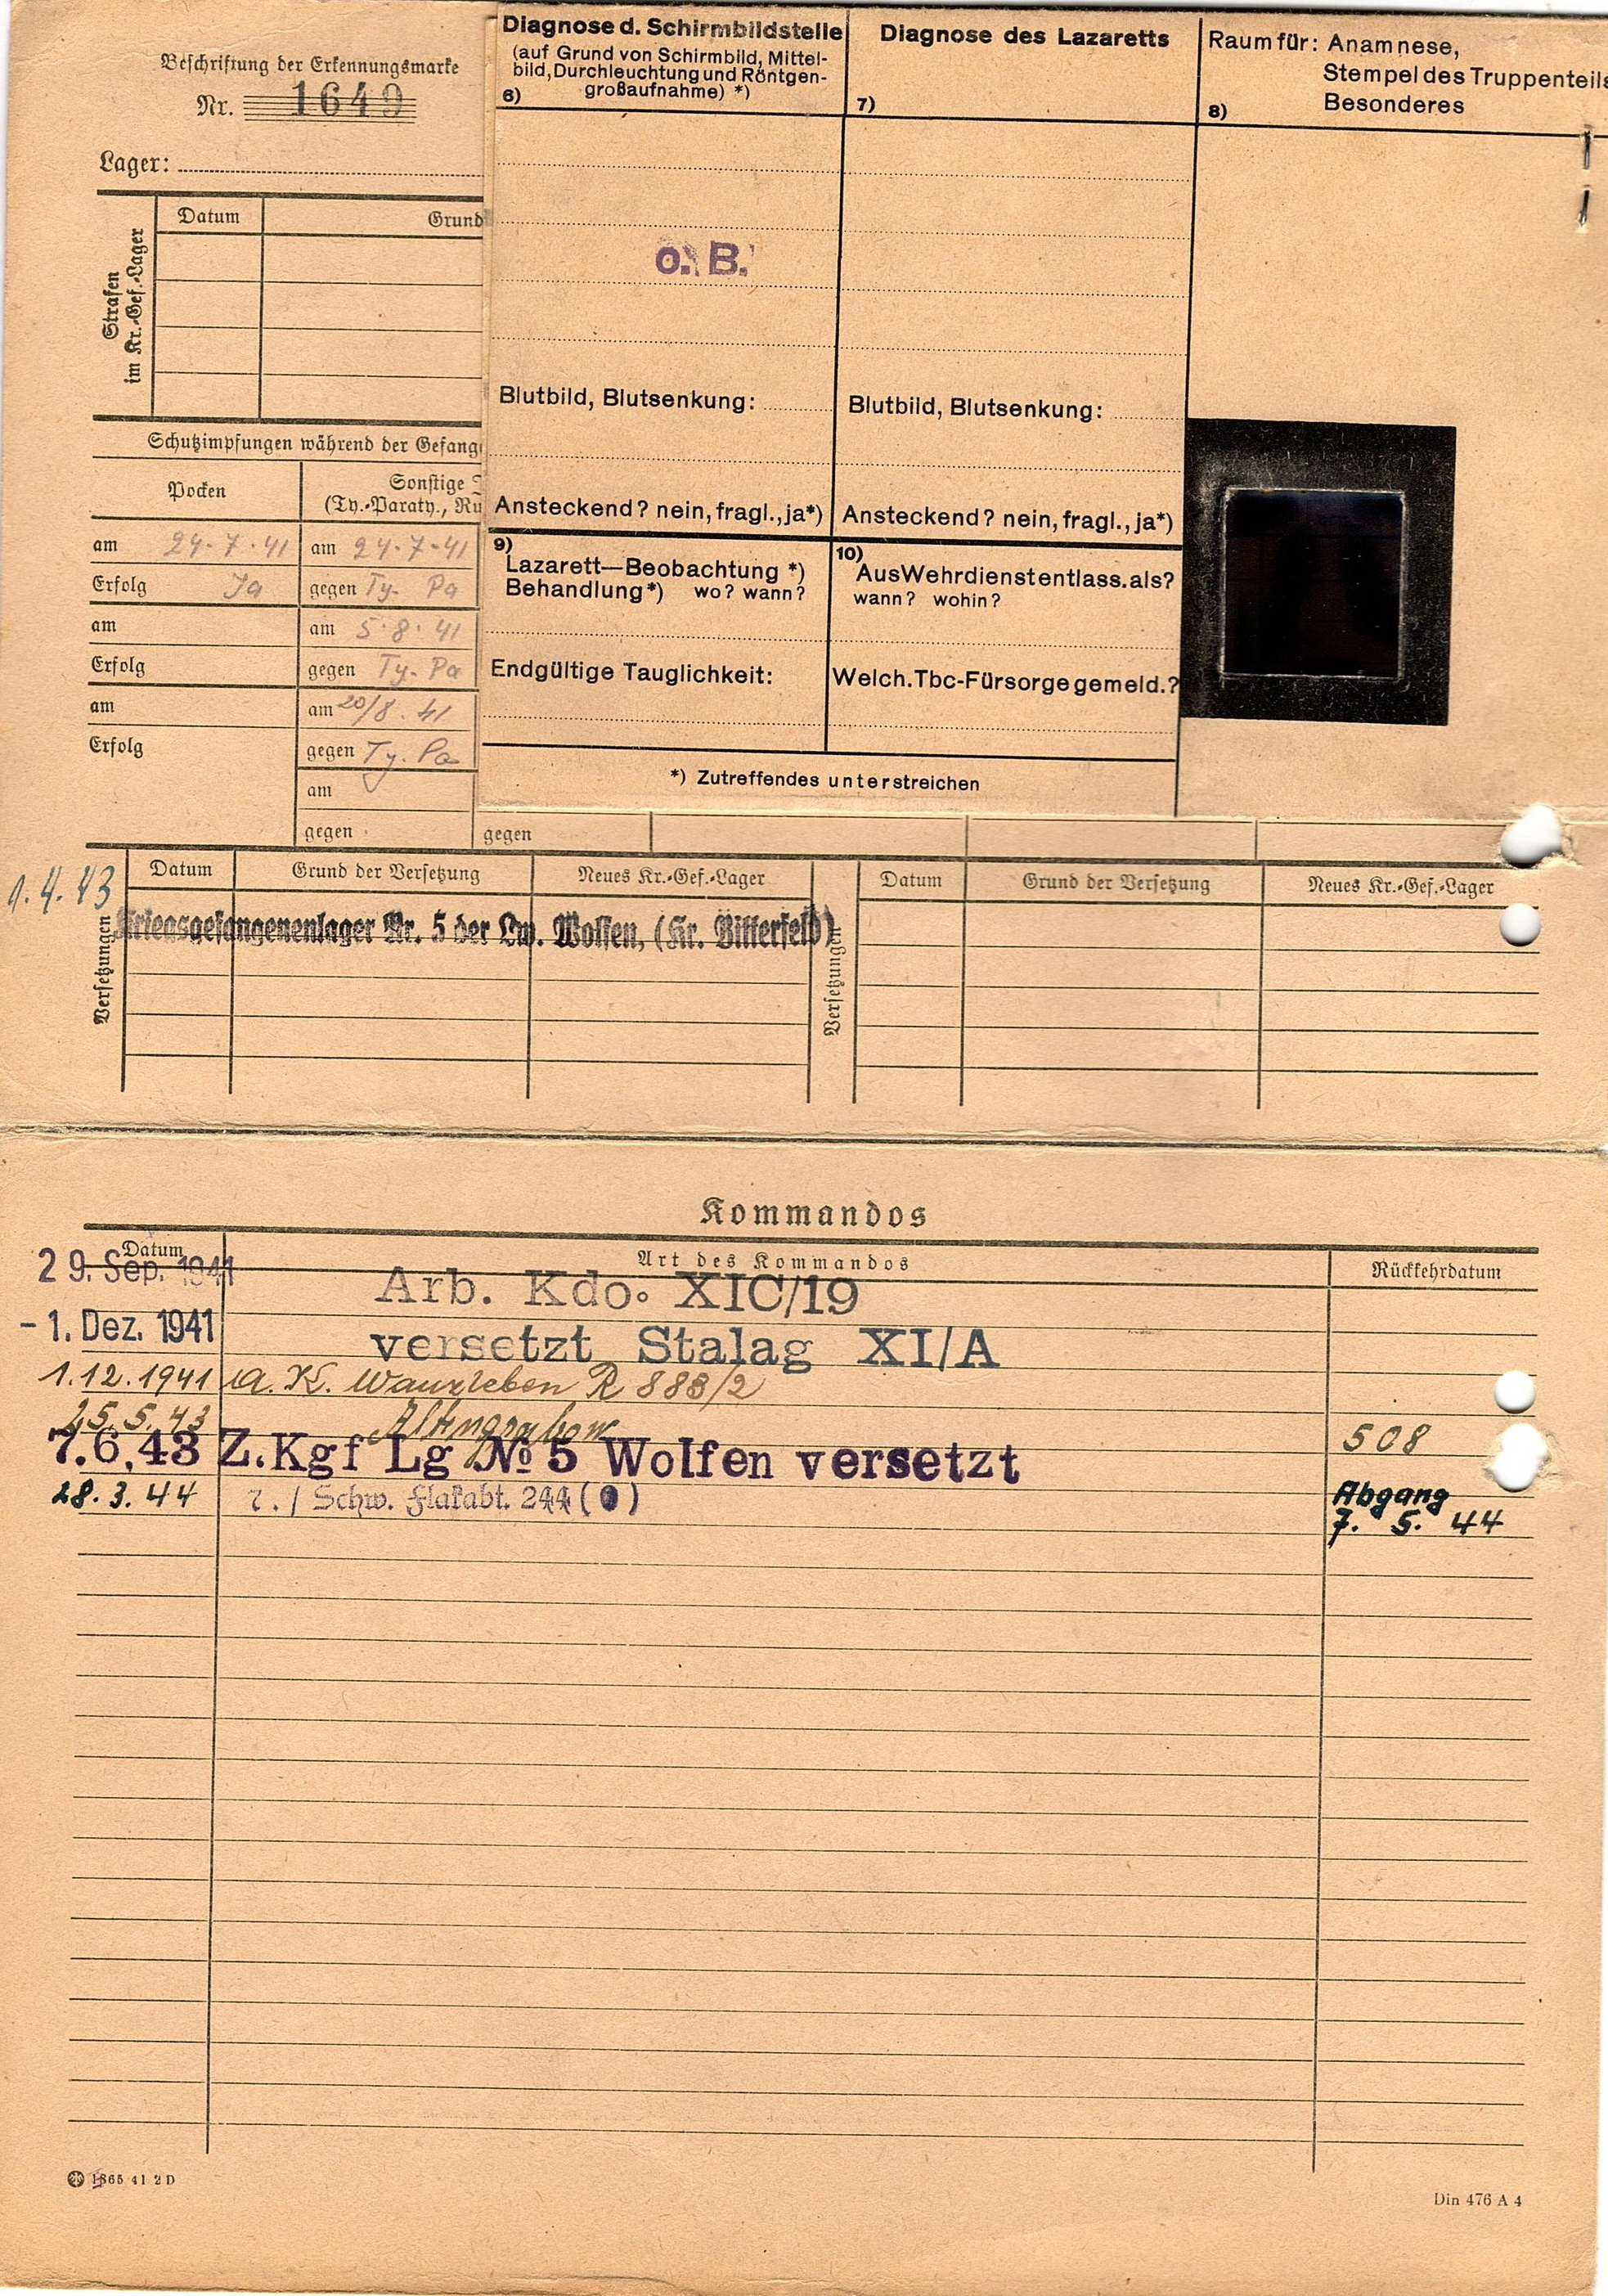 Beschriftung der Erkennungsmarke
Nr. 1649
Lager:
Strafen
im Kr.-Gef.-Lager
Datum
Grund
Schutzimpfungen während der Gefang
Pocken
Sonstige
(Ty.-Paraty., Ru
am 24.7.41 am 24.7.41
Erfolg Ja gegen Ty. Pa
am am 5.8.41
Erfolg gegen Ty. Pa
am am 20/8.41
Erfolg gegen Ty. Pa
am
gegen gegen
Diagnose d. Schirmbildstelle
(auf Grund von Schirmbild, Mittel-
bild, Durchleuchtung und Röntgen-
großaufnahme) *)
6)
o. B.
Blutbild, Blutsenkung:
Ansteckend? nein, fragl., ja*)
Diagnose des Lazaretts
7)
Blutbild, Blutsenkung:
Ansteckend? nein, fragl., ja*)
Raum für: Anamnese,
Stempel des Truppenteils
Besonderes
8)
9)
Lazarett—Beobachtung *)
Behandlung*) wo? wann?
Endgültige Tauglichkeit:
10)
Aus Wehrdienst entlass. als?
wann? wohin?
Welch. Tbc-Fürsorge gemeld.?
*) Zutreffendes unterstreichen
1.4.43
Versetzungen
Datum Grund der Versetzung Neues Kr.-Gef.-Lager
Kriegsgefangenenlager Nr. 5 der Lw. Wolfen, (Kr. Bitterfeld)
Versetzungen
Datum Grund der Versetzung Neues Kr.-Gef.-Lager
Kommandos
Datum Art des Kommandos Rückkehrdatum
29. Sep. 1941 Arb. Kdo. XIC/19
-1. Dez. 1941 versetzt Stalag XI/A
1.12.1941 A. K. Wanzleben R 888/2
25.5.43 Altengrabow
7.6.43 Z.Kgf Lg No 5 Wolfen versetzt 508
28.3.44 7./Schw. Flakabt. 244 (o) Abgang
7. 5. 44
1865 41 2 D
Din 476 A 4